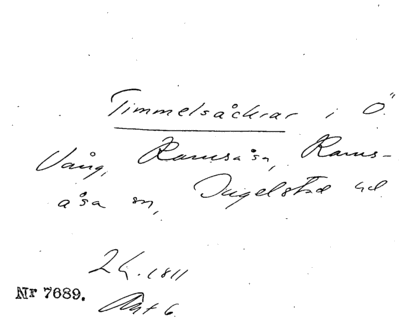 Timmelsåckrar i Ö.
Vång, Ramsåsa, Rams-
åsa sn, Ingelstad hd
2 h. 1811
Nr 7689.
Akt 6.